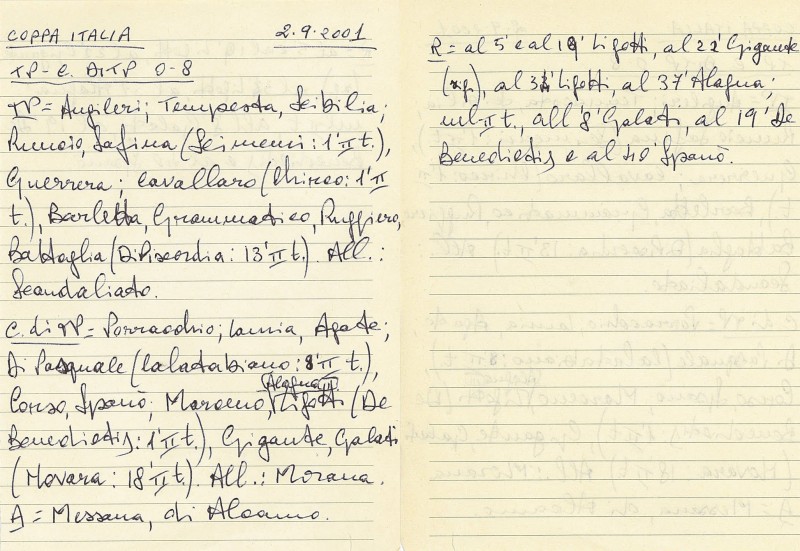 COPPA ITALIA 2.9.2001
TP - C. DI TP 0-8
TP = Angileri; Tempesta, Scibilia;
Runcio, Safina (Scimemi: 1' II t.),
Guerrera; Cavallaro (Chirco: 1' II
t.), Barletta, Grammatico, Ruggiero,
Battaglia (Di Discordia: 13' II t.). All.:
Scandaliato.
C. di TP = Porracchio; Lamia, Agate;
Di Pasquale (Calatabiano: 8' II t.),
Corso, Spanò; Moroeno, Alagna, Ligotti (De
Benedictis: 1' II t.), Gigante, Galati
(Novara: 18' II t.). All.: Morana.
A = Messana, di Alcamo.
R = al 5' e al 19' Ligotti, al 22' Gigante
(rig.), al Ligotti, al 37' Alagna;
nel II t., all'8' Galati, al 19' De
Benedictis e al 40' Spanò.